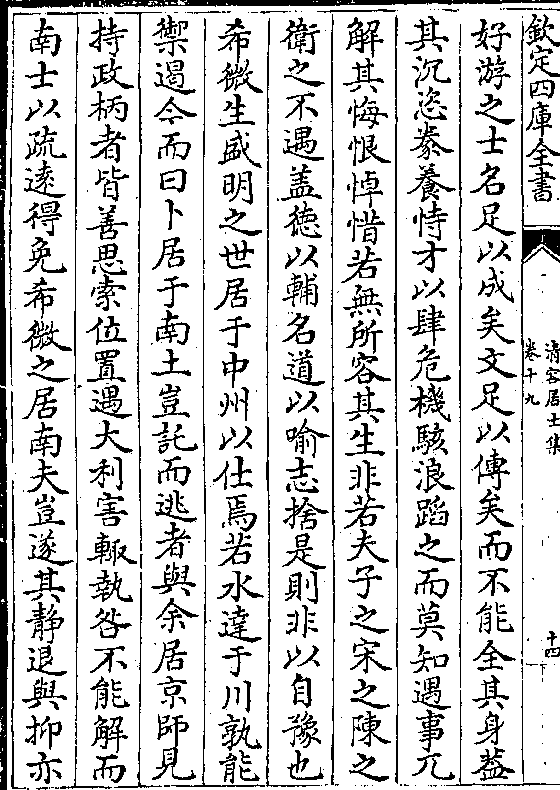 欽定四庫全書
清容居士集
卷十九
十四
好游之士名足以成矣文足以傳矣而不能全其身葢
其沉恣豢養恃才以肆危機駭浪蹈之而莫知遇事兀
解其悔恨悼惜若無所容其生非若夫子之宋之陳之
衛之不遇葢徳以輔名道以喻志捨是則非以自豫也
希微生盛明之世居于中州以仕焉若水逹于川孰能
禦遏今而曰卜居于南土豈託而逃者與余居京師見
持政柄者皆善思索位置遇大利害輙執咎不能解而
南士以疏逺得免希微之居南夫豈遂其静退與抑亦